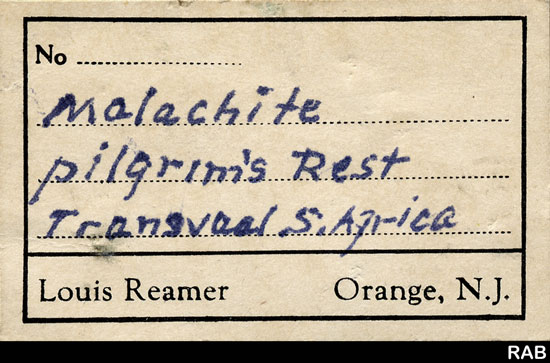 No ....................
Malachite
pilgrim's Rest
Transvaal S. Africa
Louis Reamer Orange, N.J.
RAB